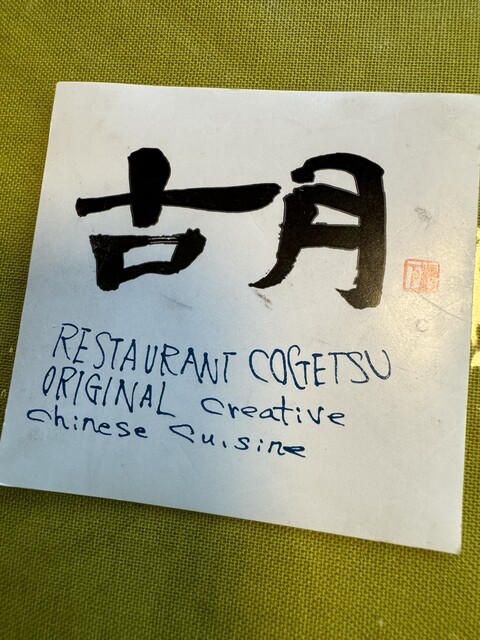 古月
RESTAURANT COGETSU
ORIGINAL Creative
Chinese Cuisine